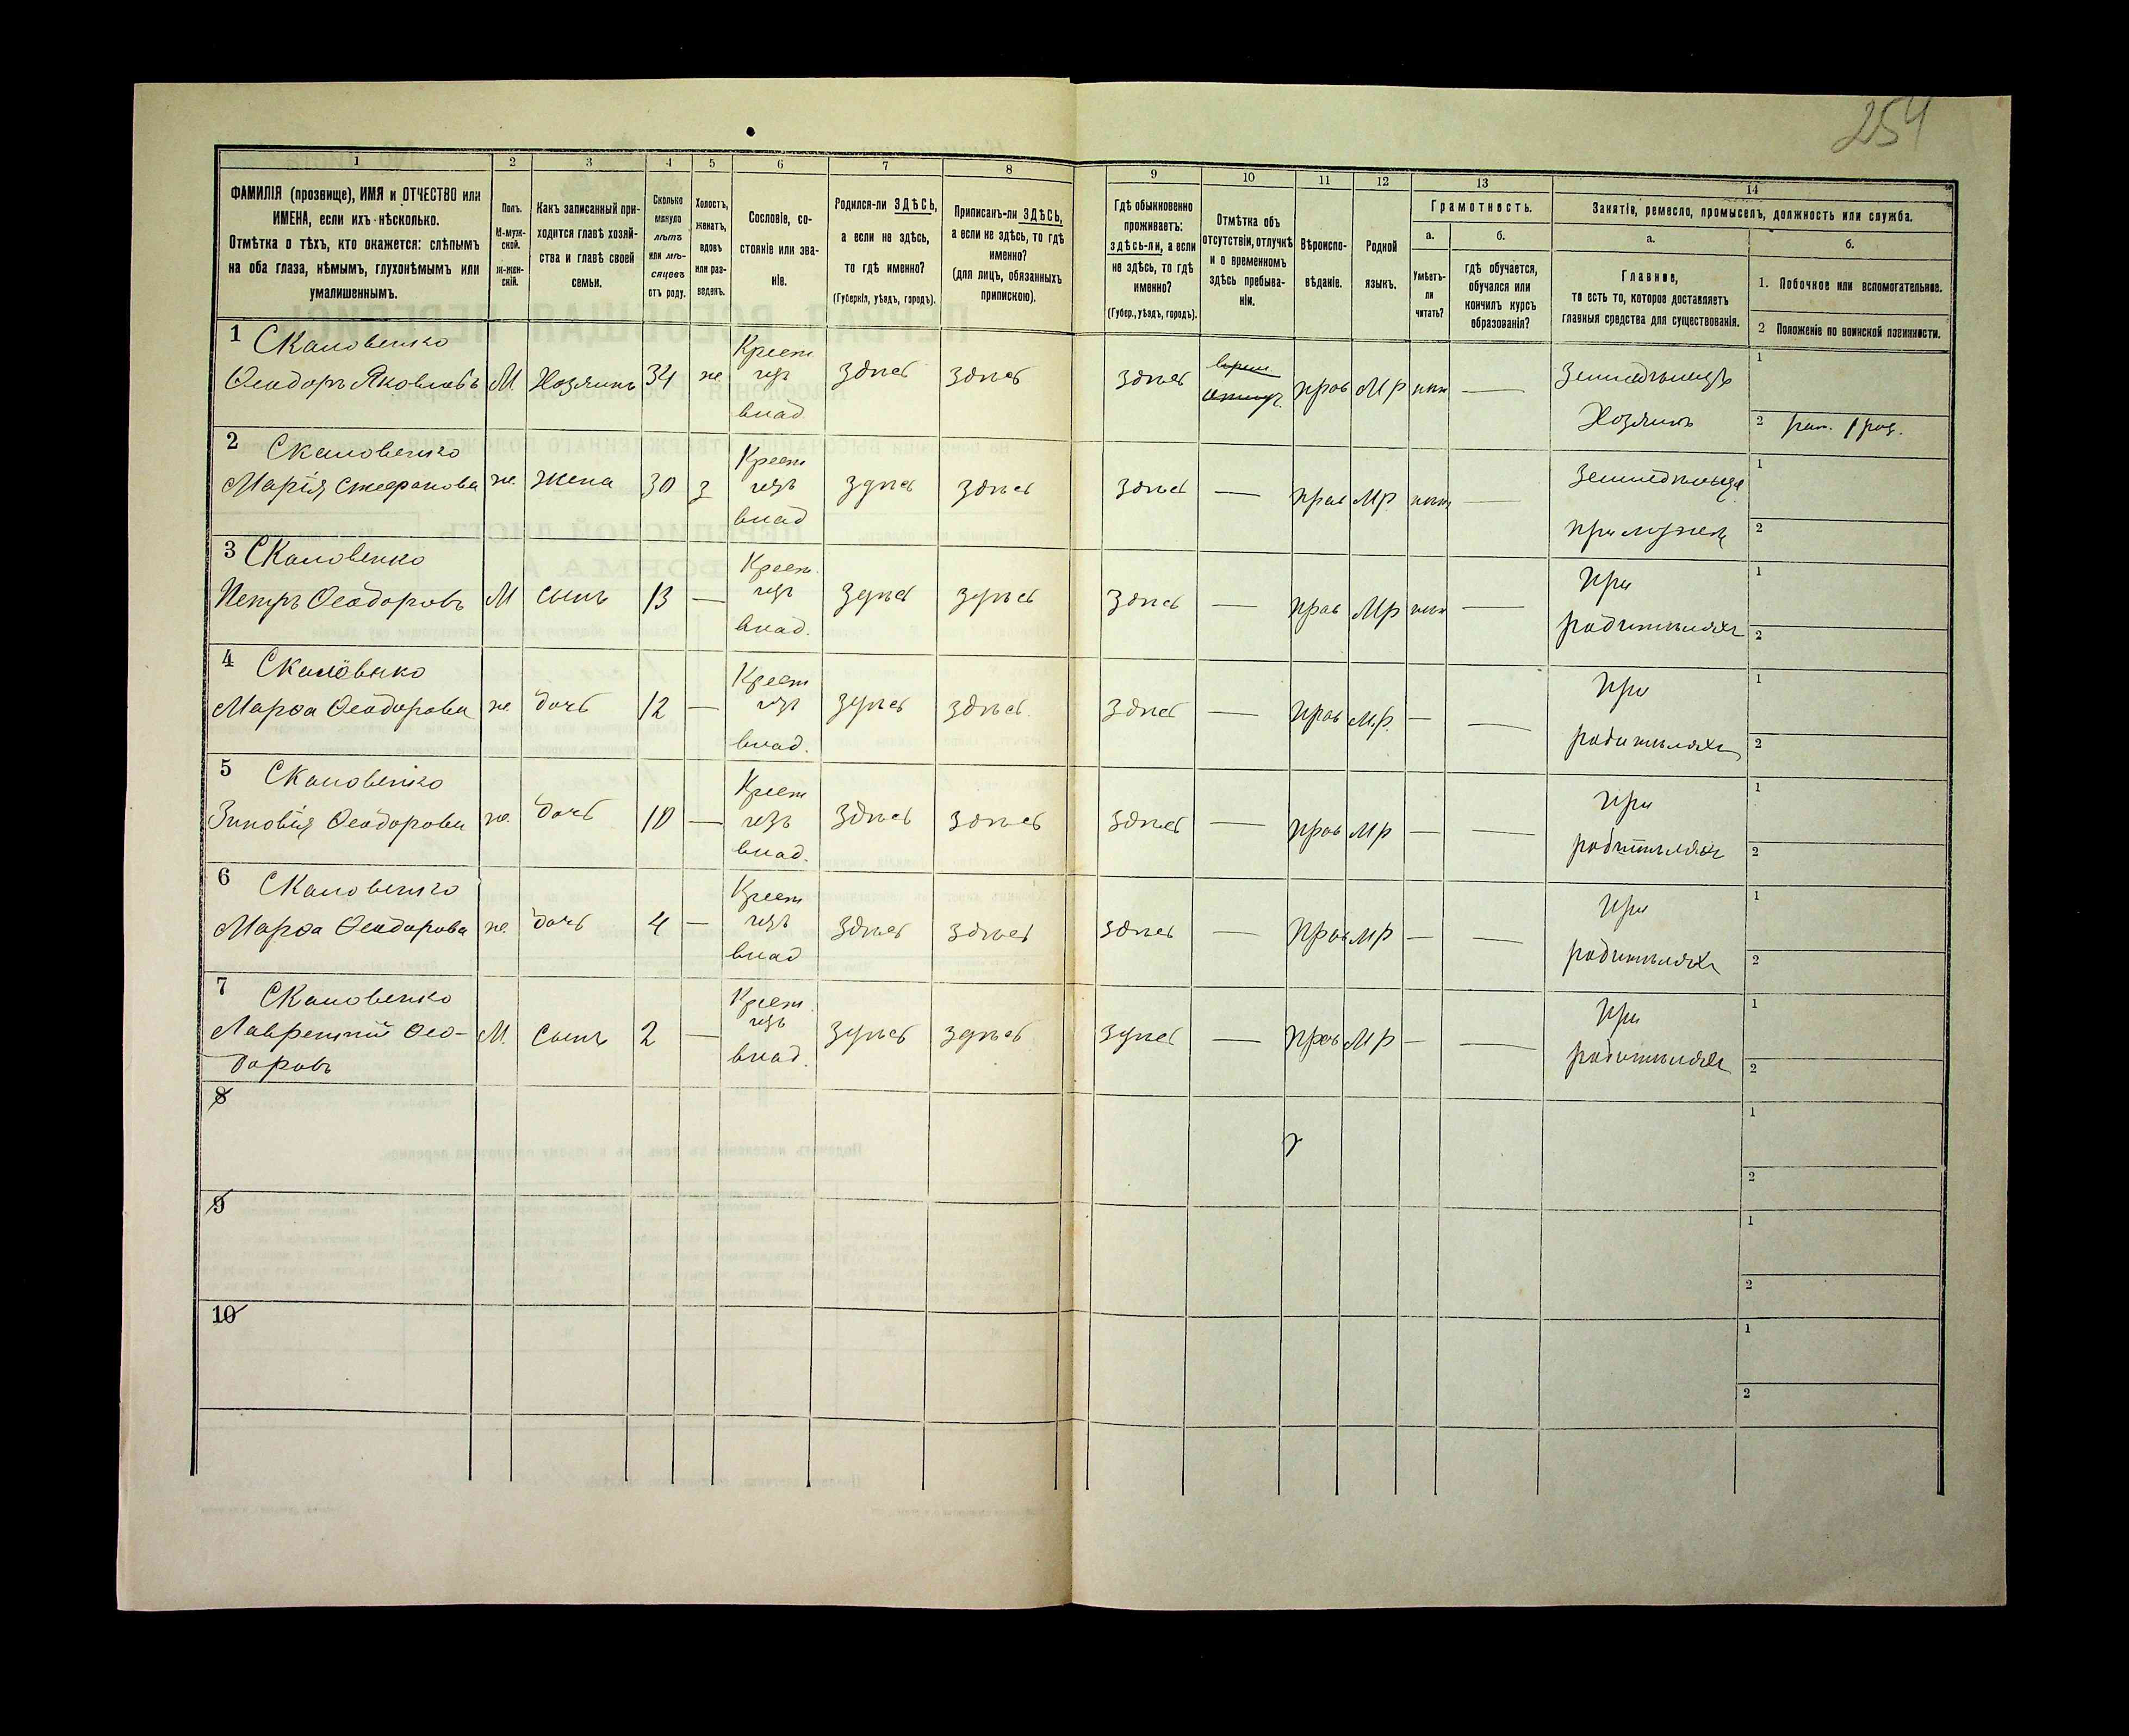 254
1 2 3 4 5 6 7 8 9 10 11 12 13 14
ФАМИЛІЯ (прозвище), ИМЯ и ОТЧЕСТВО или
ИМЕНА, если ихъ нѣсколько.
Отмѣтка о тѣхъ, кто окажется: слѣпымъ
на оба глаза, нѣмымъ, глухонѣмымъ или
умалишеннымъ.
Полъ.
М-муж-
ской.
ж-жен-
скій.
Какъ записанный при-
ходится главѣ хозяй-
ства и главѣ своей
семьи.
Сколько
минуло
лѣтъ
или мѣ-
сяцевъ
отъ роду.
Холостъ,
женатъ,
вдовъ
или раз-
веденъ.
Сословіе, со-
стояніе или зва-
ніе.
Родился-ли ЗДѢСЬ,
а если не здѣсь,
то гдѣ именно?
(Губернія, уѣздъ, городъ).
Приписанъ-ли ЗДѢСЬ,
а если не здѣсь, то гдѣ
именно?
(для лицъ, обязанныхъ
припискою).
Гдѣ обыкновенно
проживаетъ:
здѣсь-ли, а если
не здѣсь, то гдѣ
именно?
(Губер., уѣздъ, городъ).
Отмѣтка объ
отсутствіи, отлучкѣ
и о временномъ
здѣсь пребыва-
ніи.
Вѣроиспо-
вѣданіе.
Родной
языкъ.
Грамотность.
а.
Умѣетъ-
ли
читать?
б.
гдѣ обучается,
обучался или
кончилъ курсъ
образованія?
Занятіе, ремесло, промыселъ, должность или служба.
а.
Главное,
то есть то, которое доставляетъ
главныя средства для существованія.
б.
1. Побочное или вспомогательное.
2 Положеніе по воинской повинности.
1 Скаловенко Крест
Ѳеодоръ Яковлевъ М Хозяинъ 34 ж здѣсь здѣсь здѣсь прав МР Земледѣлецъ 1
влад. Хозяинъ 2
2 Скаловенко Крест
Марія Стефанова ж. жена 30 з здѣсь здѣсь здѣсь — прав МР — 1
влад при мужѣ 2
3 Скаловенко Крест. При 1
Петръ Ѳеодоровъ М сынъ 13 — здѣсь здѣсь здѣсь — прав МР —
влад. родителяхъ 2
4 Скаловенко Крест При 1
Марѳа Ѳеодорова ж дочь 12 — здѣсь здѣсь здѣсь — прав М.Р. — —
влад. родителяхъ 2
5 Скаловенко Крест При 1
Зиновія Ѳеодорова ж. дочь 10 — здѣсь здѣсь здѣсь — прав МР — —
влад. родителяхъ 2
6 Скаловенко Крест При 1
Марѳа Ѳеодорова ж. дочь 4 — здѣсь здѣсь здѣсь — прав МР — —
влад родителяхъ 2
7 Скаловенко Крест. При 1
Лаврентій Ѳео- М. сынъ 2 — здѣсь здѣсь здѣсь — прав МР — —
доровъ влад. родителяхъ 2
8 1
2
9 1
2
10 1
2